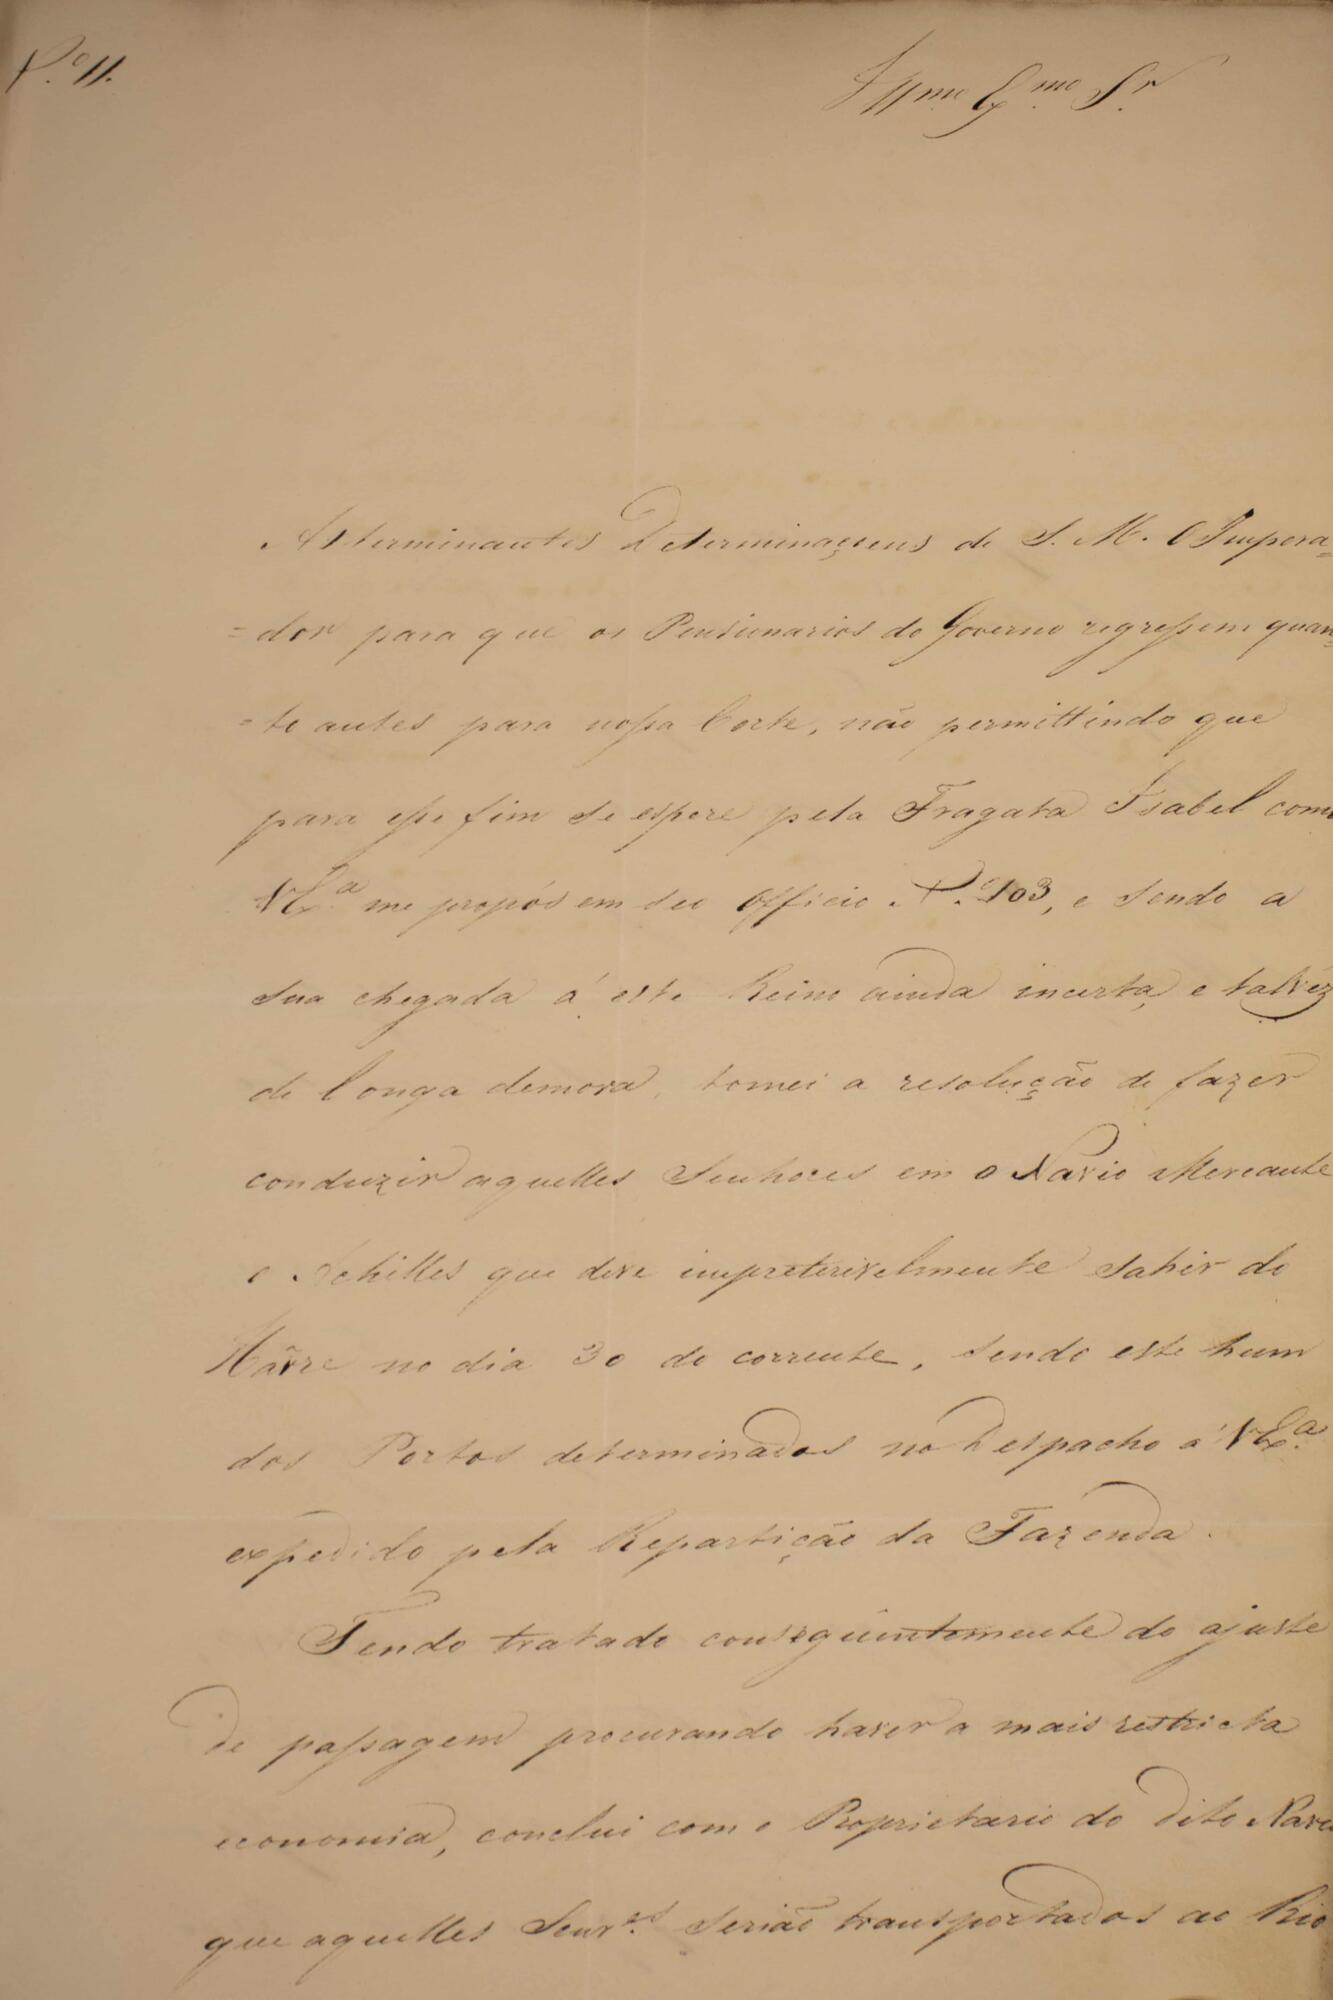 N.º 11.
Illmo. Exmo. Sr.
As terminantes Determinaçoens de S. M. O Impera=
=dor para que os Pensionarios do Governo regressem quan=
=to antes para nossa Corte, não permittindo que
para esse fim se espere pela Fragata Isabel como
V Exa. me propós em seu Officio N.º 103, e sendo a
sua chegada á este Reino ainda incerta, e talvez
de longa demora, tomei a resolução de fazer
conduzir aquelles Senhores em o Navio Mercante
o Achilles que deve impreterivelmente sahir do
Hâvre no dia 30 do corrente, sendo este hum
dos Portos determinados no Despacho á V Exa.
expedido pela Repartição da Fazenda.
Tendo tratado conseguintemente do ajuste
de passagem procurando haver a mais restricta
economia, conclui com o Proprietario do dito Navio
que aquelles Senres. serião transportados ao Rio